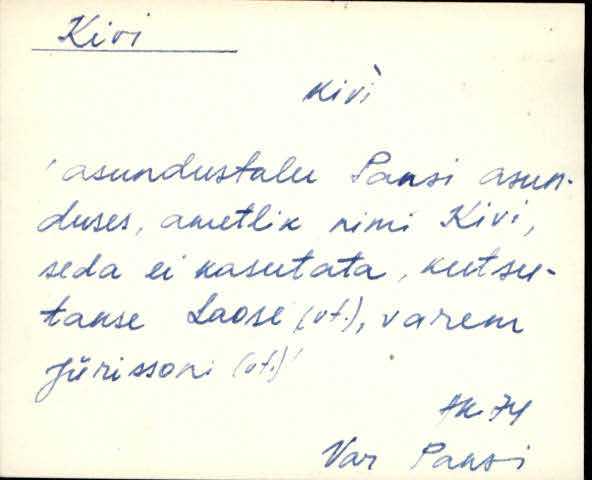 Kivi
kivì
'asundustalu Pansi asun-
duses, ametlik nimi Kivi,
seda ei kasutata, kutsu-
takse Laose (vt.), varem
Jürissoni (vt.)'
AK 74
Var Pansi